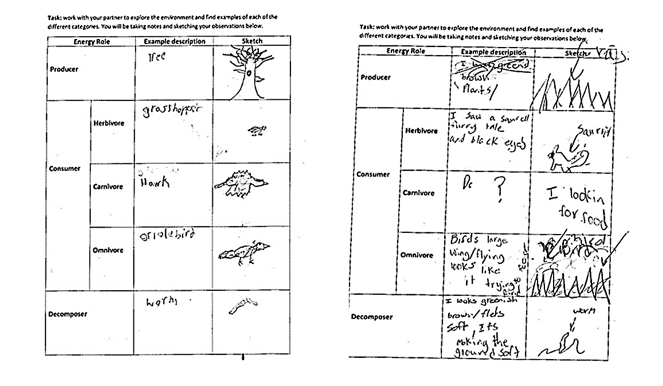 Task: work with your partner to explore the environment and find examples of each of the
different categories. You will be taking notes and sketching your observations below.
Energy Role Example description Sketch
Producer
Tree
Herbivore
grasshopper
Consumer
Carnivore
Hawk
Omnivore
oriole bird
Decomposer
worm
Task: work with your partner to explore the environment and find examples of each of the
different categories. You will be taking notes and sketching your observations below.
Energy Role Example description Sketch
Producer
brown
Plants/
Herbivore
I saw a squrell
furry tale
and black eyes
Consumer
Carnivore
?
I lookin
for food
Omnivore
Birds large
wing/flying
looks like
it trying to
find
food
Bird
Decomposer
I looks greenish
brown/flets
soft, Its
making the
ground soft
worm